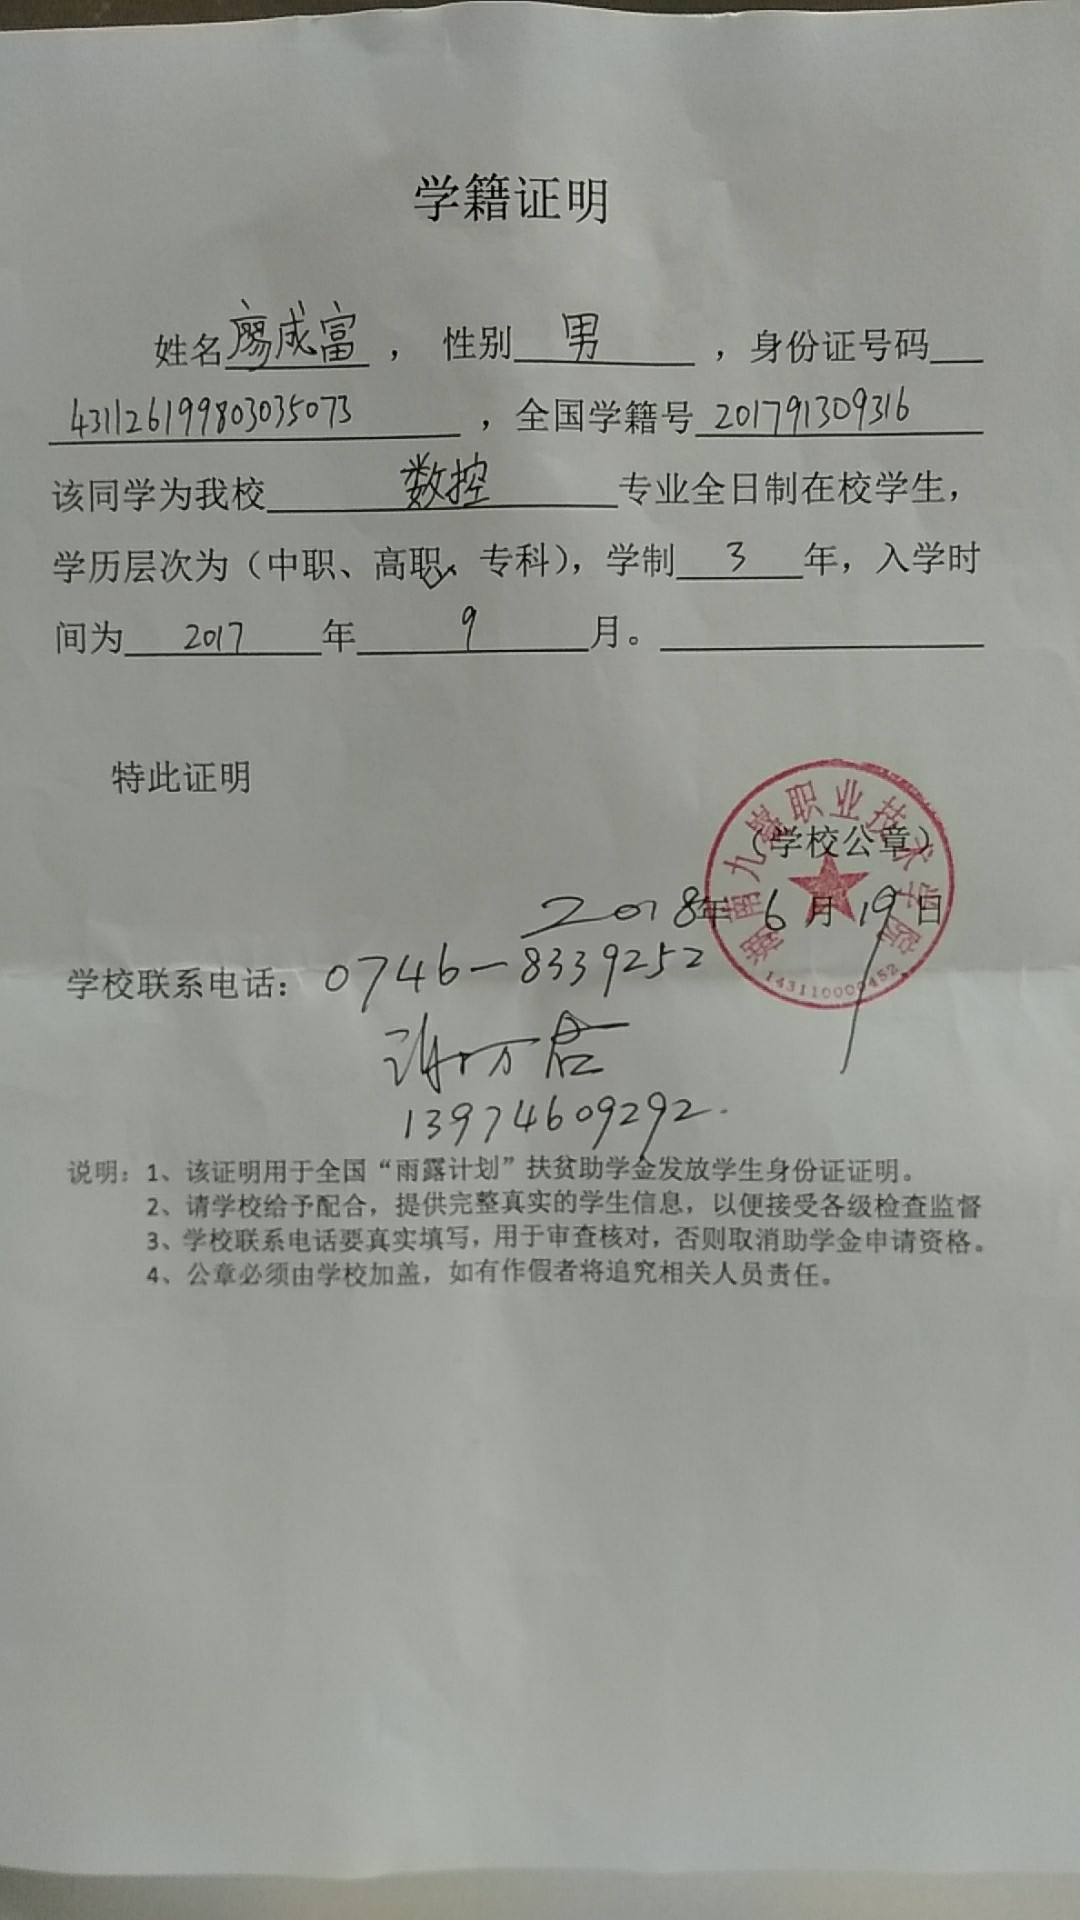 学籍证明
姓名廖成富，性别 男 ，身份证号码
431126199803035073 ，全国学籍号 201791309316
该同学为我校 数控 专业全日制在校学生，
学历层次为（中职、高职、专科），学制 3 年，入学时
间为 2017 年 9 月。
特此证明
（学校公章）
湖南九嶷职业技术学院
2018年6月19日
学校联系电话：0746-8339252
13974609292.
说明：1、该证明用于全国“雨露计划”扶贫助学金发放学生身份证证明。
2、请学校给予配合，提供完整真实的学生信息，以便接受各级检查监督
3、学校联系电话要真实填写，用于审查核对，否则取消助学金申请资格。
4、公章必须由学校加盖，如有作假者将追究相关人员责任。